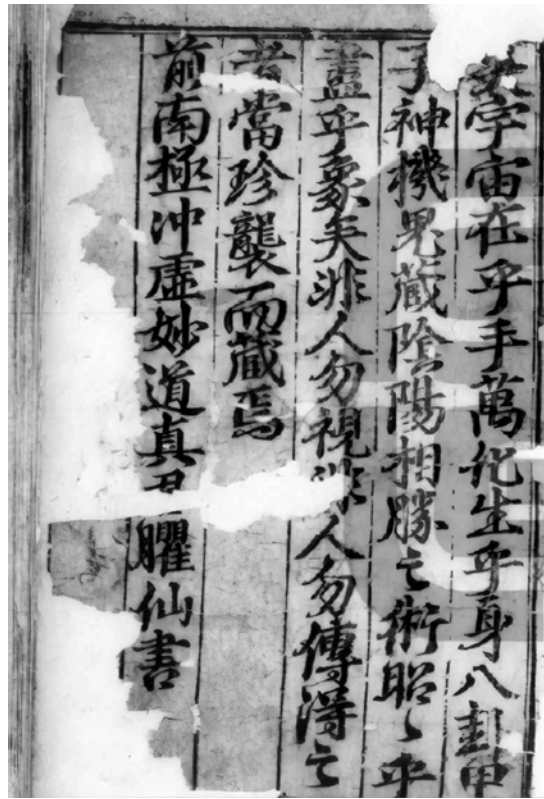 宇宙在乎手萬化生乎身八卦甲
子神機鬼藏陰陽相勝之術昭〻乎
盡乎象矣非人勿視非人勿傳得之
者當珍襲而藏焉
前南極沖虛妙道真君臞仙書